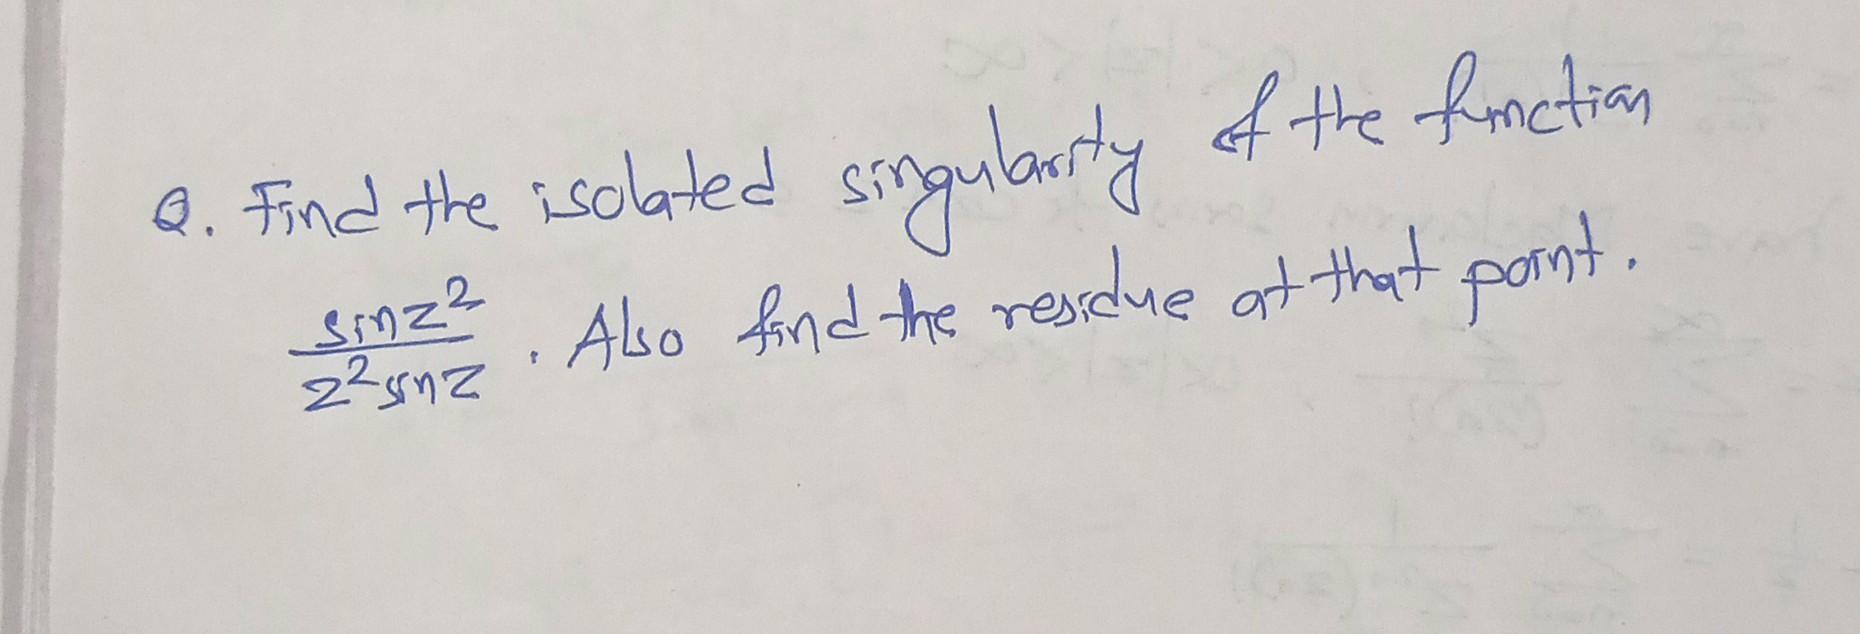 Q. Find the isolated singularity of the function
sinz²/z²sinz. Also find the residue at that point.